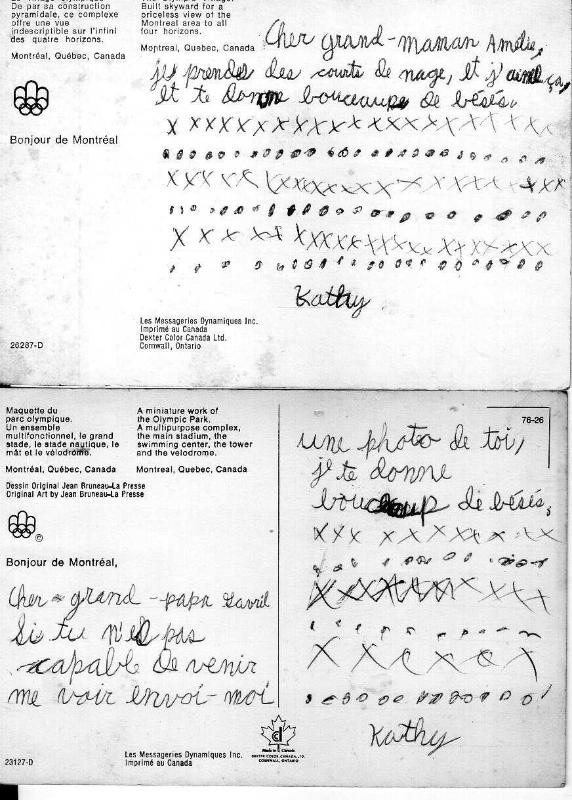 De par sa construction
pyramidale, ce complexe
offre une vue
indescriptible sur l'infini
des quatre horizons.
Montréal, Québec, Canada
Built skyward for a
priceless view of the
Montreal area to all
four horizons.
Montreal, Quebec, Canada
Bonjour de Montréal
Cher grand-maman Amélie,
je prendes des courts de nage, et j'aime ça,
et te donne bouceaups de bésés.
X XXXXXXXXXXXXXXXXXX
ooooooooooooooooooooo
XXXXX XXXXXXXXXXXXXXXX
ooooooooooooooooooo
X X X XX XXXXXXXXXXXXXX
oooooooooooooooooooo
Kathy
Les Messageries Dynamiques Inc.
Imprimé au Canada
Dexter Color Canada Ltd.
Cornwall, Ontario
26287-D
Maquette du
parc olympique.
Un ensemble
multifonctionnel, le grand
stade, le stade nautique, le
mât et le vélodrome.
Montréal, Québec, Canada
A miniature work of
the Olympic Park.
A multipurpose complex,
the main stadium, the
swimming center, the tower
and the velodrome.
Montreal, Quebec, Canada
Dessin Original Jean Bruneau-La Presse
Original Art by Jean Bruneau-La Presse
©
Bonjour de Montréal,
Cher grand-papa Gavril
Si tu n'es pas
capable de venir
me voir envoi-moi
76-26
une photo de toi,
je te donne
boucoup de bésés,
XXX XXXXXXX
o o o o o o o o o
XXXXXXXXXX
X X X X X X
o o o o o o o o o o o o
Kathy
Made in Canada
DEXTER COLOR CANADA LTD.
CORNWALL, ONTARIO
Les Messageries Dynamiques Inc.
Imprimé au Canada
23127-D